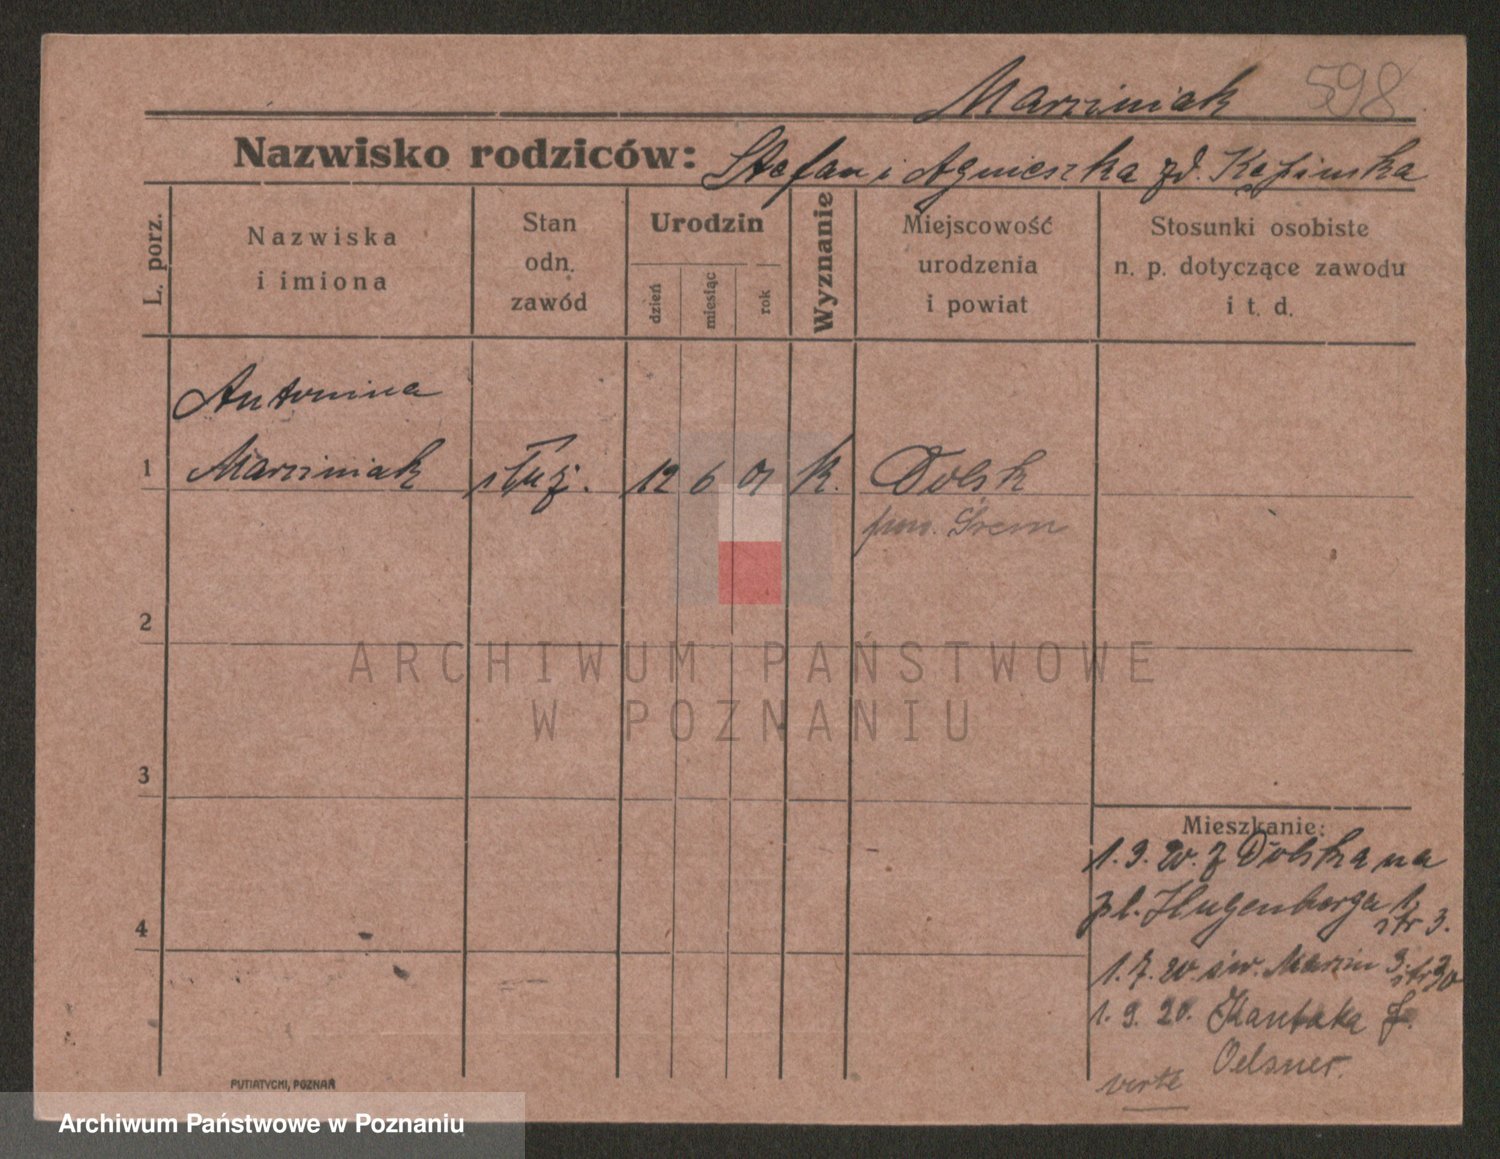 Marciniak 598
Nazwisko rodziców: Stefan i Agnieszka zd. Kęsinska
L. porz.
Nazwiska
i imiona
Stan
odn.
zawód
Urodzin
dzień
miesiąc
rok
Wyznanie
Miejscowość
urodzenia
i powiat
Stosunki osobiste
n. p. dotyczące zawodu
i t. d.
Antonina
1 Marciniak służ. 12 6 01 k. Dolsk
pow. Śrem
2
3
4
Mieszkanie:
1.9.20. z Dolska na
pl. Hugenberga 1.
str 3.
1.7.20 św. Marcin
1.9.20. Kantaka
Oelsner.
verte
PUTIATYCKI, POZNAŃ
ARCHIWUM PAŃSTWOWE
W POZNANIU
Archiwum Państwowe w Poznaniu